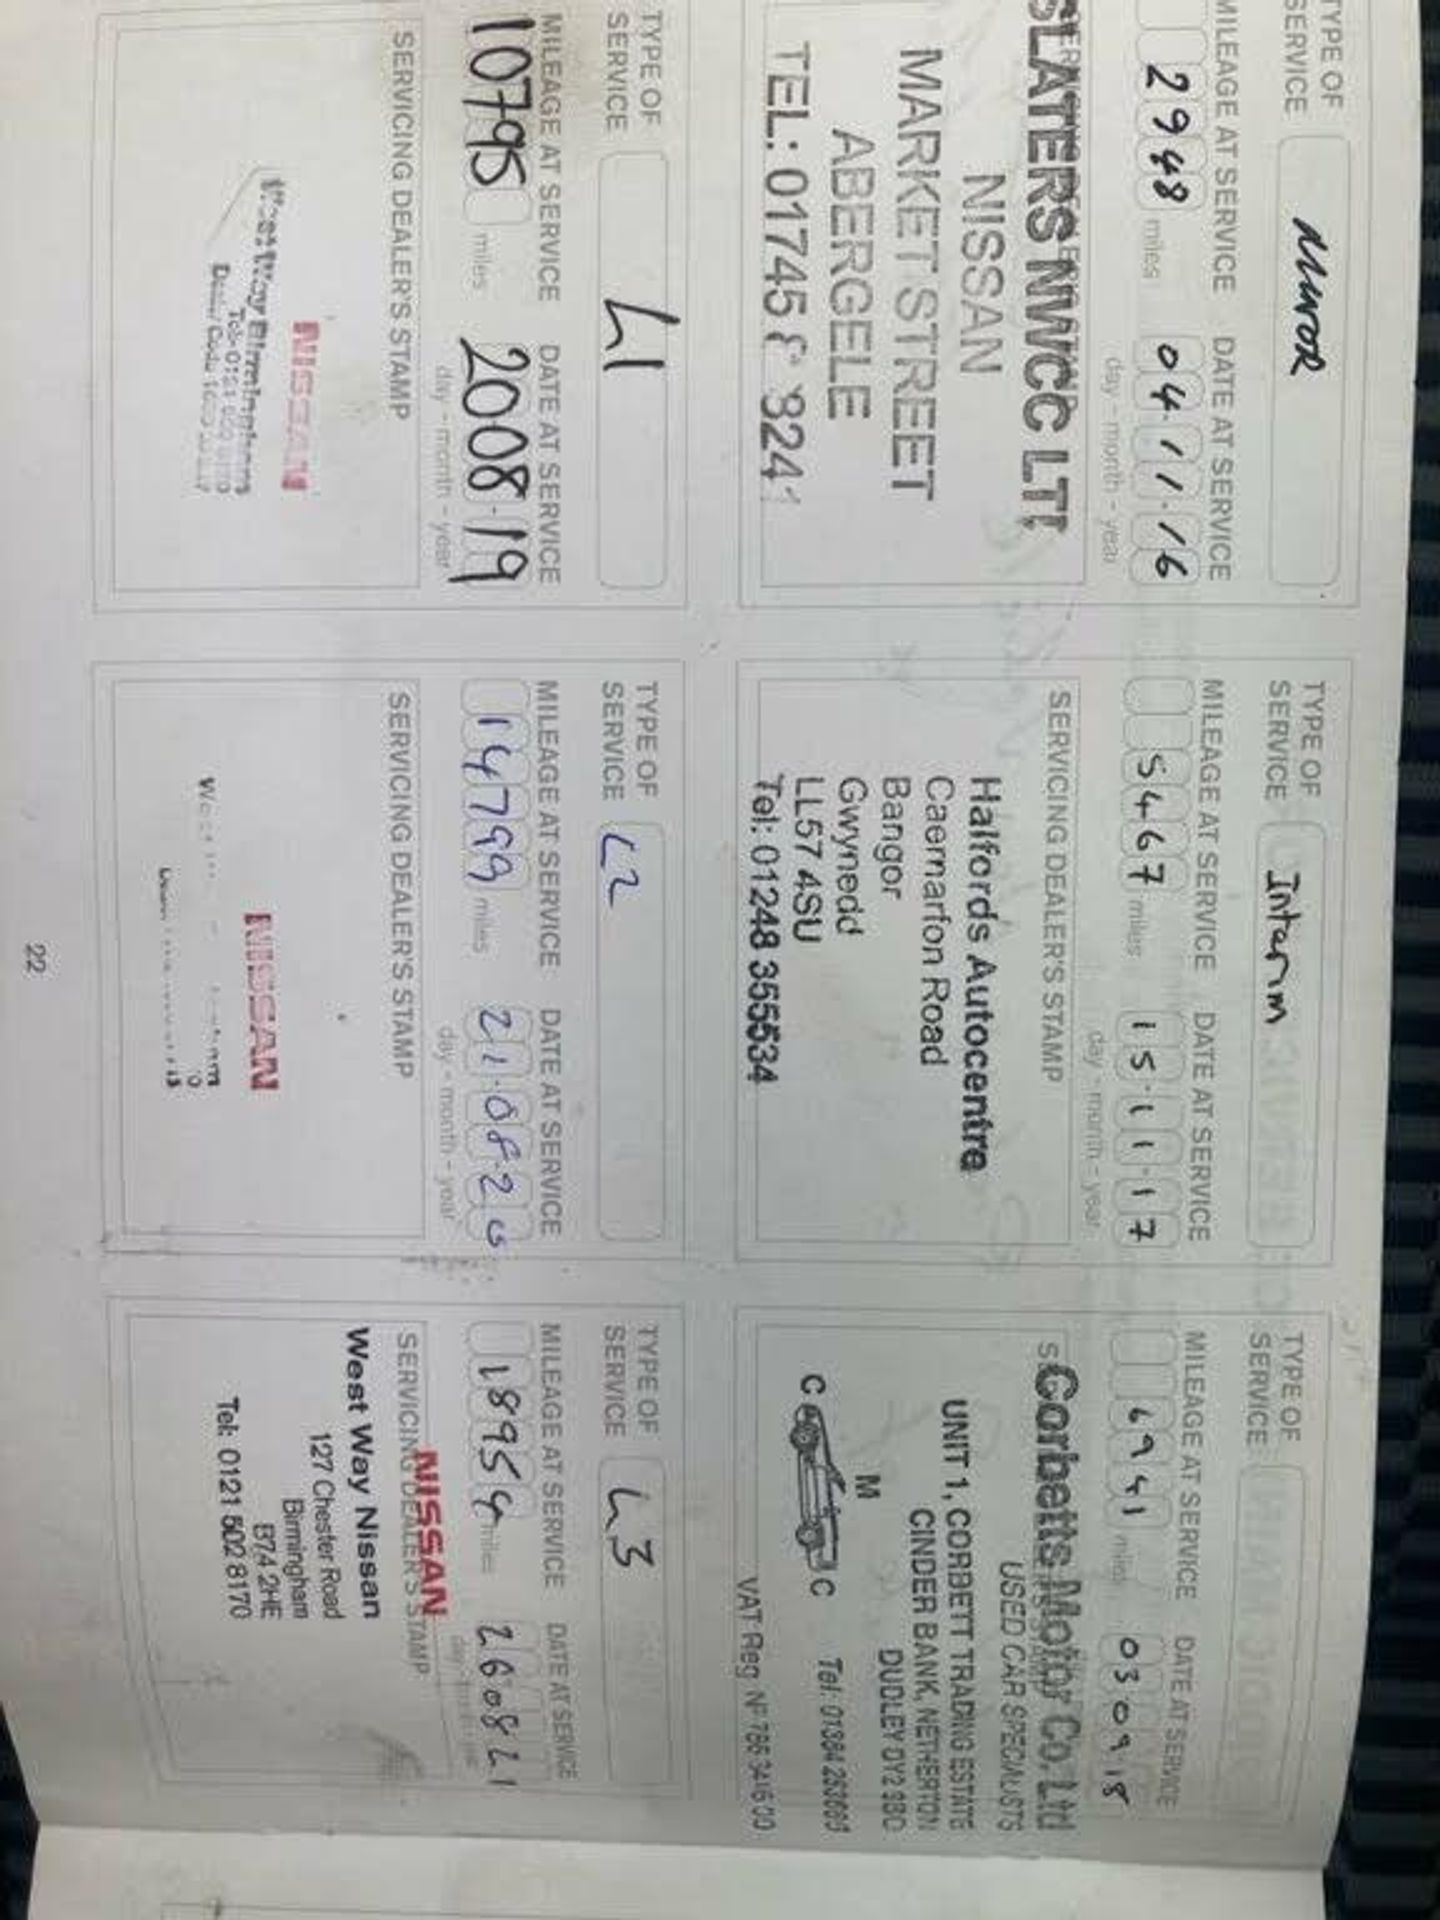 TYPE OF
SERVICE
MINOR
MILEAGE AT SERVICE DATE AT SERVICE
2948 miles 04.11.16
day - month - year
SLATERS NWCC LTD
NISSAN
MARKET STREET
ABERGELE
TEL: 01745 824
TYPE OF
SERVICE
Interim
MILEAGE AT SERVICE DATE AT SERVICE
5467 miles 15.11.17
day - month - year
SERVICING DEALER'S STAMP
Halfords Autocentre
Caernarfon Road
Bangor
Gwynedd
LL57 4SU
Tel: 01248 355534
TYPE OF
SERVICE
MILEAGE AT SERVICE DATE AT SERVICE
6941 miles 03 09.18
Corbetts Motor Co. Ltd
USED CAR SPECIALISTS
UNIT 1, CORBETT TRADING ESTATE
CINDER BANK, NETHERTON
DUDLEY DY2 9BD
C M C
Tel: 01384
VAT Reg Nº
TYPE OF
SERVICE
L1
MILEAGE AT SERVICE DATE AT SERVICE
10795 miles 2008.19
day - month - year
SERVICING DEALER'S STAMP
NISSAN
West Way Birmingham
TYPE OF
SERVICE
L2
MILEAGE AT SERVICE DATE AT SERVICE
14799 miles 21.08.20
day - month - year
SERVICING DEALER'S STAMP
NISSAN
TYPE OF
SERVICE
L3
MILEAGE AT SERVICE DATE AT SERVICE
18959 miles 260821
SERVICING DEALER'S STAMP
NISSAN
West Way Nissan
127 Chester Road
Birmingham
B74 2HE
Tel: 0121 502 8170
22